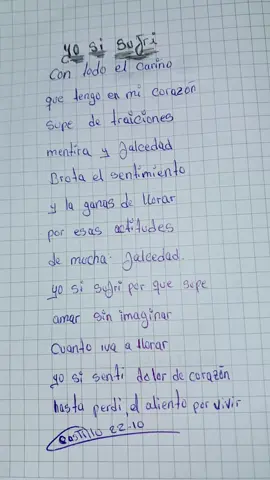 yo si sufri
Con todo el cariño
que tengo en mi corazón
supe de traiciones
mentira y falcedad
Brota el sentimiento
y la ganas de llorar
por esas actitudes
de mucha falcedad.
yo si sufri por que supe
amar sin imaginar
Cuanto iva a llorar
yo si senti dolor de corazón
hasta perdi, el aliento por vivir
CASTILLO 22-10